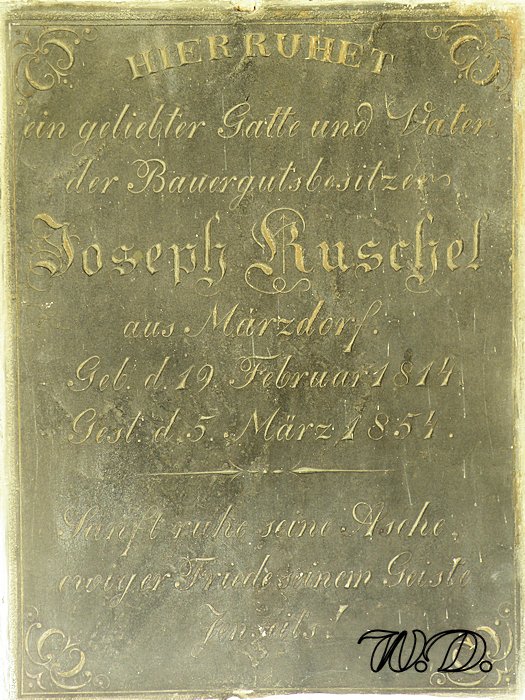 HIER RUHET
ein geliebter Gatte und Vater
der Bauergutsbesitzer
Joseph Ruschel
aus Märzdorf.
Geb. d. 19. Februar 1814.
Gest. d. 5. März 1854.
Sanft ruhe seine Asche,
ewiger Friede seinem Geiste
Jenseits!
W.D.